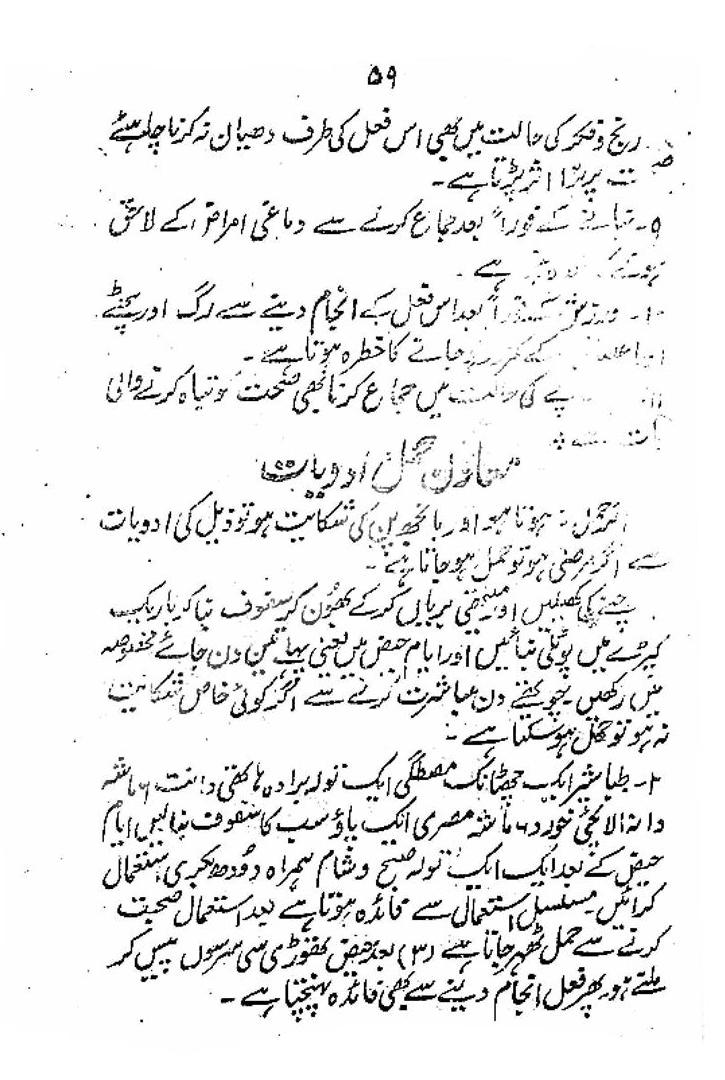 ۵۹
رنج و فکر کی حالت میں بھی اس فعل کی طرف دھیان نہ کرنا چاہئے
پر بڑا اثر پڑتا ہے۔
۹۔ نہانے کے فوراً بعد جماع کرنے سے دماغی امراض کے لائق
ہونے کا ہے۔
۱۰۔ ورزش کے فوراً بعد اس فعل کے انجام دینے سے رگ اور پٹھے
کے جانے کا خطرہ ہوتا ہے۔
کی حالت میں جماع کرنا بھی صحت کو تباہ کرنے والی
بات ہے
معاون حمل ادویات
اگر حمل نہ ہوتا ہو اور بانجھ پن کی شکایت ہو تو ذیل کی ادویات
سے اگر مرضی ہو تو حمل ہو جاتا ہے۔
چنے کی اور بریاں کر کے بھون کر سفوف بنا کر باریک
کپڑے میں پوٹلی بنائیں اور ایام حیض میں یعنی پہلے تین دن جائے مخصوصہ
میں رکھیں۔ چوتھے دن مباشرت کرنے سے اگر کوئی خاص شکایت
نہ ہو تو حمل ہو سکتا ہے۔
۲۔ طباشیر ایک چھٹانک مصطگی ایک تولہ برادہ ہاتھی دانت ۶ ماشہ
دانہ الائچی خورد ۶ ماشہ مصری ایک پاؤ سب کا سفوف بنالیں ایام
حیض کے بعد ایک ایک تولہ صبح و شام ہمراہ دودھ بکری استعمال
کرائیں۔ مسلسل استعمال سے فائدہ ہوتا ہے بعد استعمال صحبت
کرنے سے حمل ٹھہر جاتا ہے (۳) بعد حیض تھوڑی سی سرسوں پیس کر
پھر فعل انجام دینے سے بھی فائدہ پہنچتا ہے۔